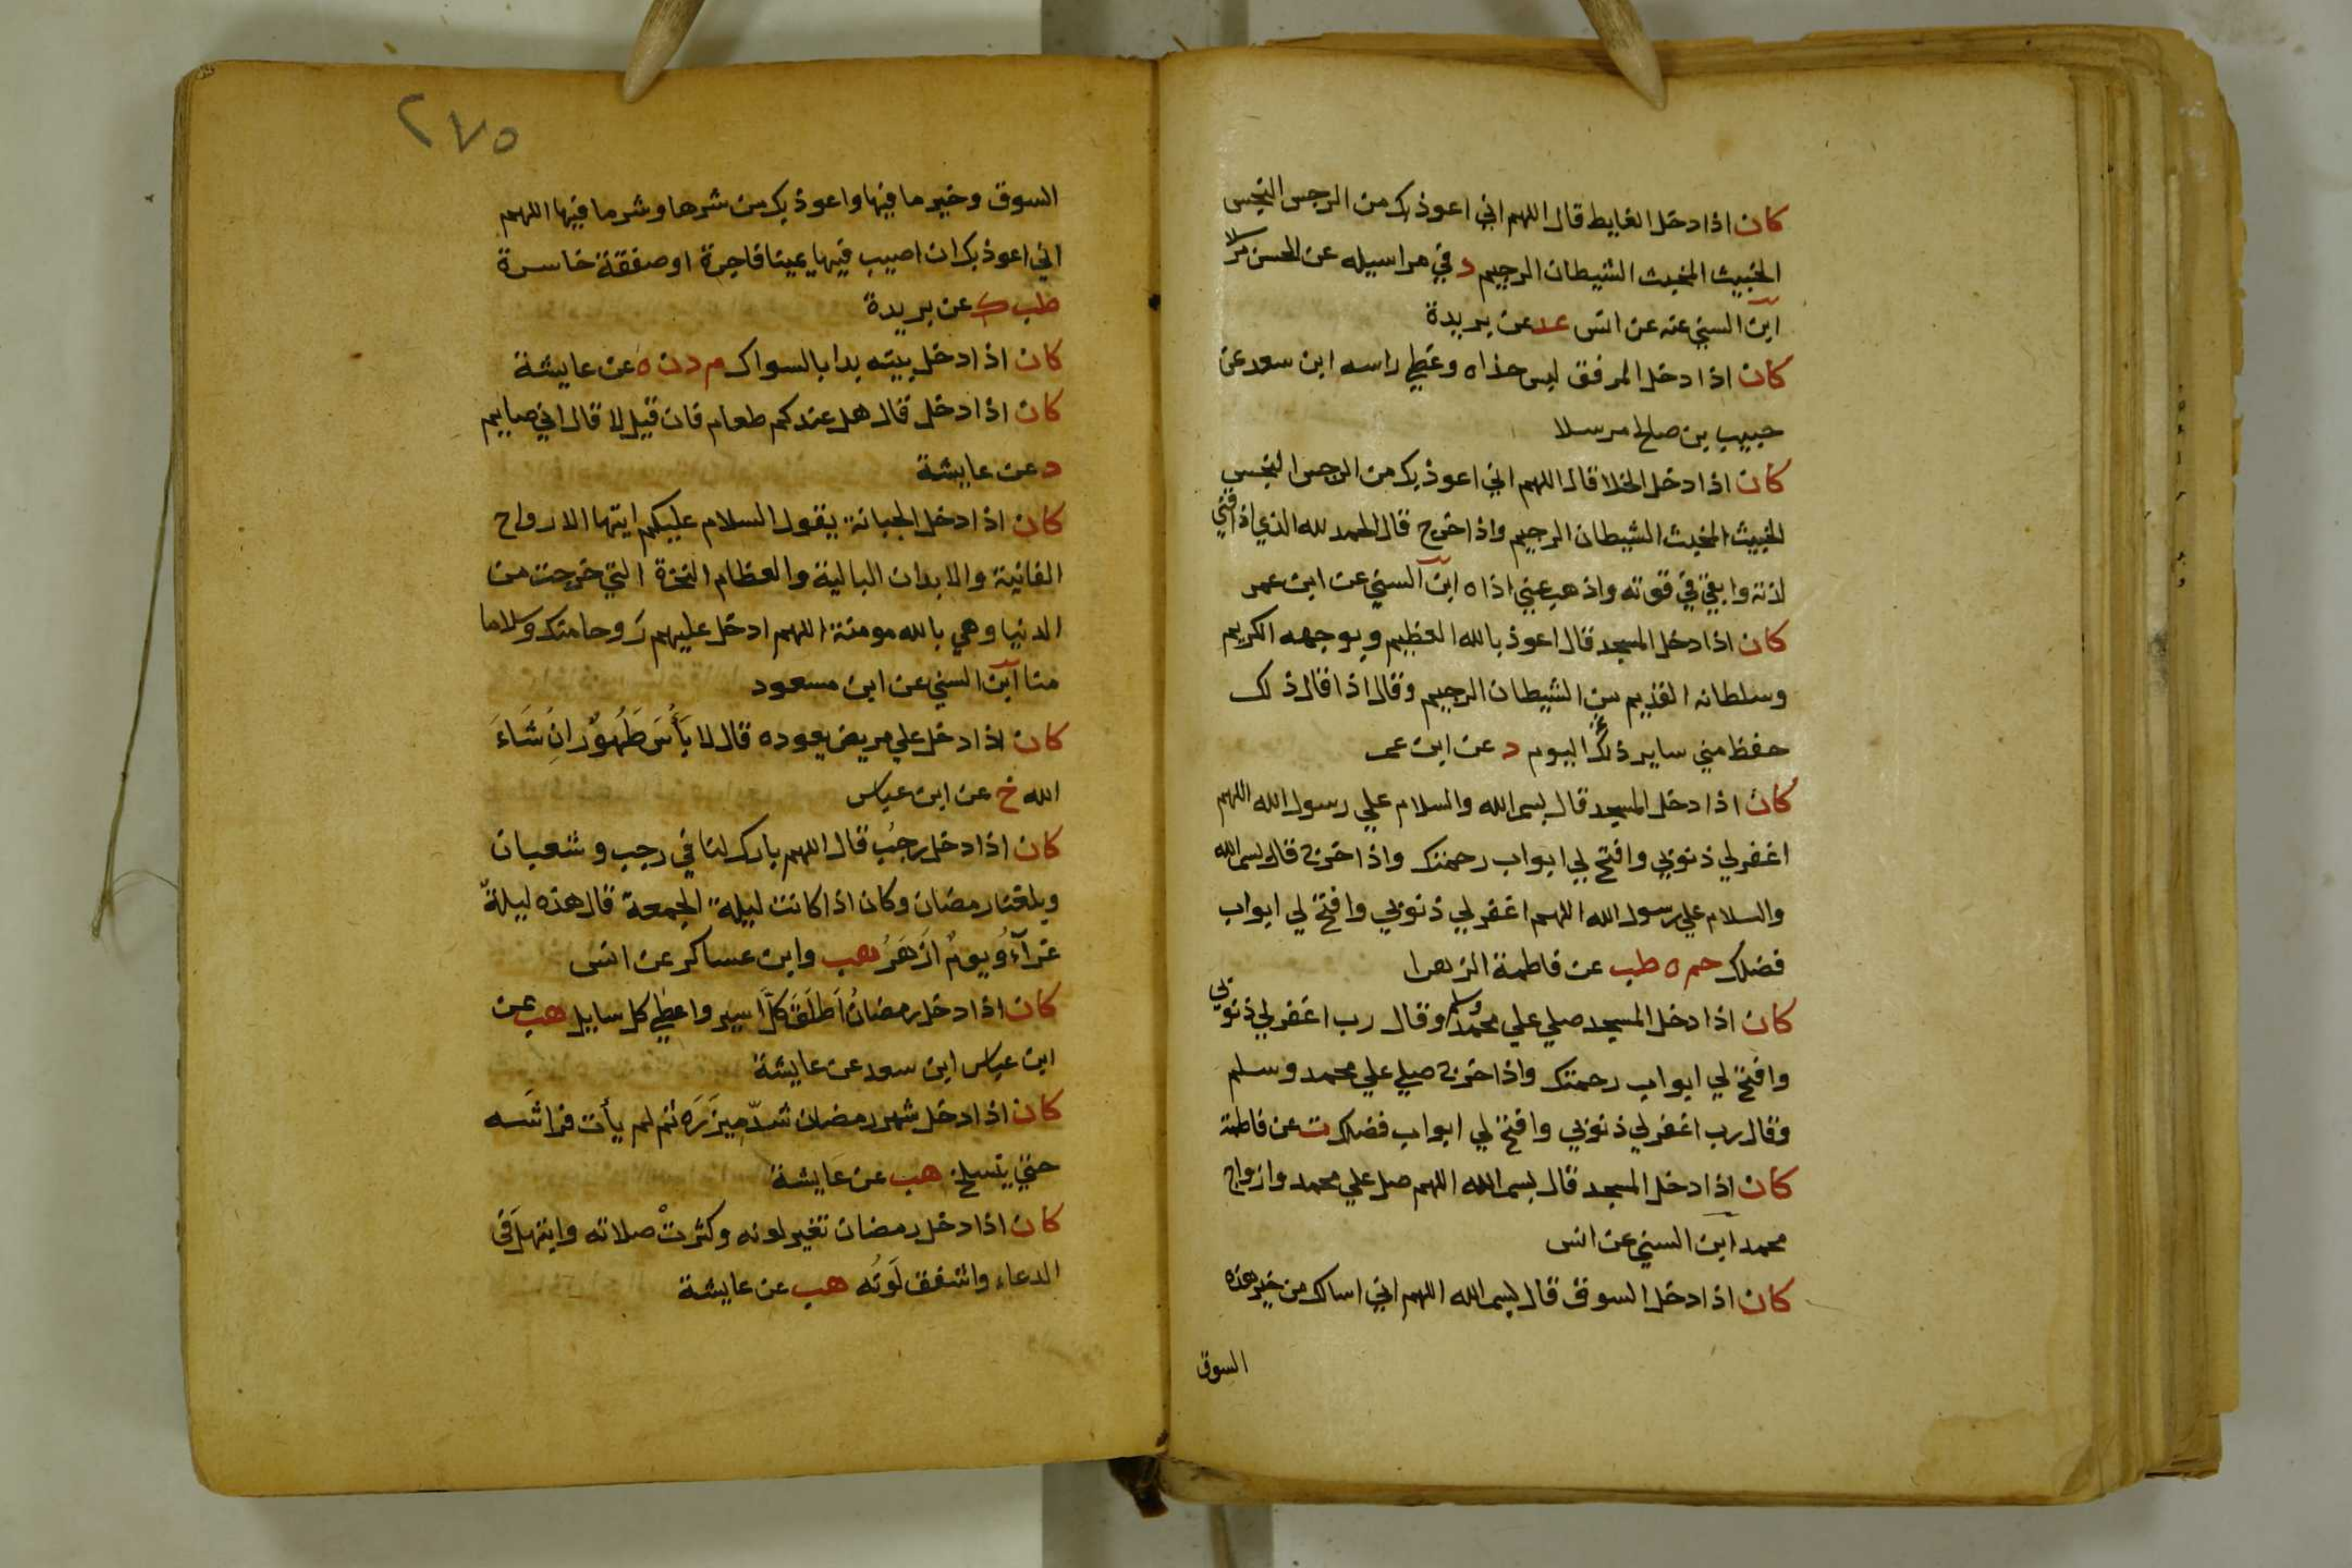 كان اذا دخل الغايط قال اللهم اني اعوذ بك من الرجس النجس
الخبيث المخبث الشيطان الرجيم د في مراسيله عن الحسن مرسلا
ابن السني عنه عن انس عد عن بريدة
كان اذا دخل المرفق لبس حذاه وغطي راسه ابن سعد عن
حبيب بن صالح مرسلا
كان اذا دخل الخلا قال اللهم اني اعوذ بك من الرجس النجس
الخبيث المخبث الشيطان الرجيم واذا خرج قال الحمد لله الذي اذاقني
لذته وابقي في قوته واذهب عني اذاه ابن السني عن ابن عمر
كان اذا دخل المسجد قال اعوذ بالله العظيم وبوجهه الكريم
وسلطانه القديم من الشيطان الرجيم وقال اذا قال ذلك
حفظ مني ساير ذلك اليوم د عن ابن عمر
كان اذا دخل المسجد قال بسم الله والسلام علي رسول الله اللهم
اغفر لي ذنوبي وافتح لي ابواب رحمتك واذا خرج قال بسم الله
والسلام علي رسول الله اللهم اغفر لي ذنوبي وافتح لي ابواب
فضلك حم ه طب عن فاطمة الزهرا
كان اذا دخل المسجد صلي علي محمد وسلم وقال رب اغفر لي ذنوبي
وافتح لي ابواب رحمتك واذا خرج صلي علي محمد وسلم
وقال رب اغفر لي ذنوبي وافتح لي ابواب فضلك ت عن فاطمة
كان اذا دخل المسجد قال بسم الله اللهم صل علي محمد وازواج
محمد ابن السني عن انس
كان اذا دخل السوق قال بسم الله اللهم اني اسالك من خير هذه
السوق
٢٧٥
السوق وخير ما فيها واعوذ بك من شرها وشر ما فيها اللهم
اني اعوذ بك ان اصيب فيها يمينا فاجرة او صفقة خاسرة
طب ك عن بريدة
كان اذا دخل بيته بدا بالسواك م د ن ه عن عايشة
كان اذا دخل قال هل عندكم طعام فان قيل لا قال اني صايم
د عن عايشة
كان اذا دخل الجبانة يقول السلام عليكم ايتها الارواح
الفانية والابدان البالية والعظام النخرة التي خرجت من
الدنيا وهي بالله مومنة اللهم ادخل عليهم رَوحا منك وسلاما
منا ابن السني عن ابن مسعود
كان اذا دخل علي مريض يعوده قال لا بَأْسَ طَهُورٌ انِ شَاءَ
الله خ عن ابن عباس
كان اذا دخل رجبُ قال اللهم بارك لنا في رجب وشعبان
وبلغنا رمضان وكان اذا كانت ليلة الجمعة قال هذه ليلةٌ
غرآءُ ويومٌ ازْهَرُ هب وابن عساكر عن انس
كان اذا دخل رمضانُ اَطلَقَ كلَّ اسير واعطي كل سايل هب عن
ابن عباس ابن سعد عن عايشة
كان اذا دخل شهر رمضان شدّ مِيزَرَه ثم لم يأت فراشَه
حتي ينسلخ هب عن عايشة
كان اذا دخل رمضان تغير لونه وكثرتْ صلاته وابتهلَ في
الدعاء واشفق لَونُه هب عن عايشة